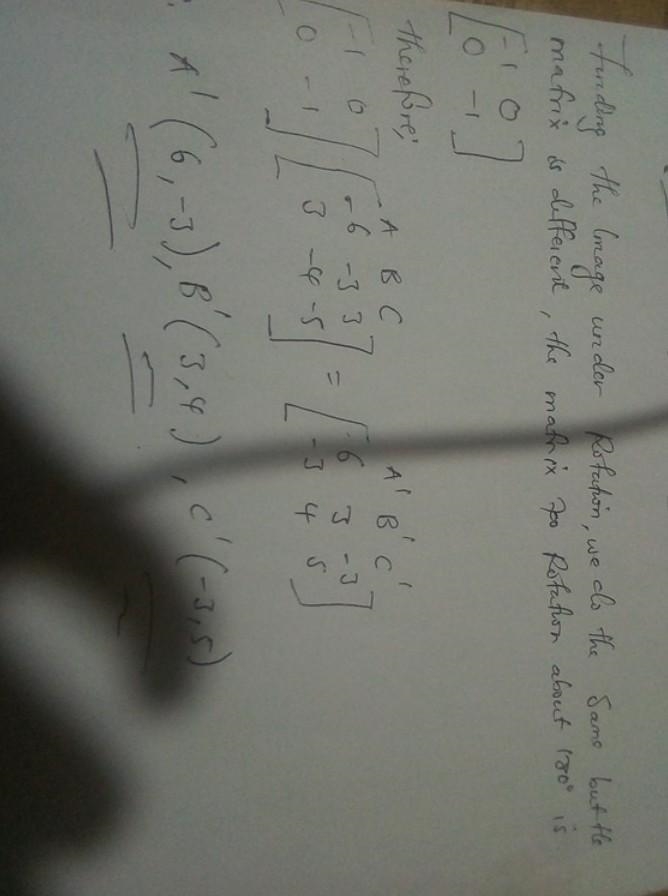 finding the image under Rotation, we do the same but the
matrix is different, the matrix for Rotation about 180° is
[-1 0
0 -1]
therefore;
A B C A' B' C'
[-1 0 [-6 -3 3 = [6 3 -3
0 -1] 3 -4 -5] -3 4 5]
: A' (6, -3), B' (3, 4), C' (-3, 5)